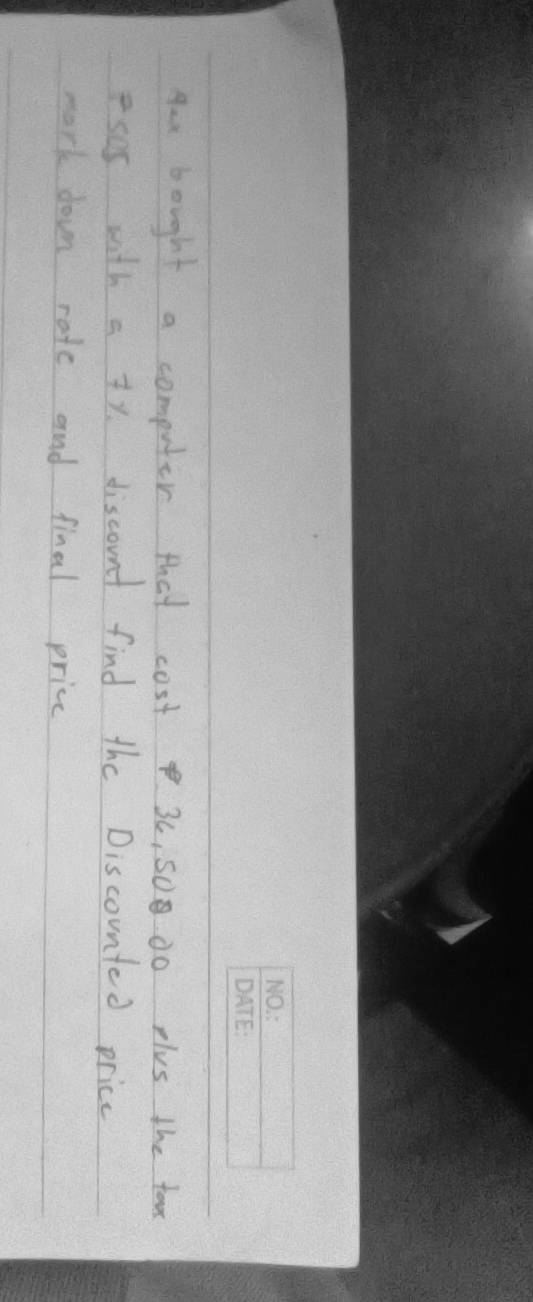 NO.:
DATE:
bought a computer that cost ₱ 36,500.00 plus the tax
₱505 with a 7% discount find the Discounted price
mark down rate and final price